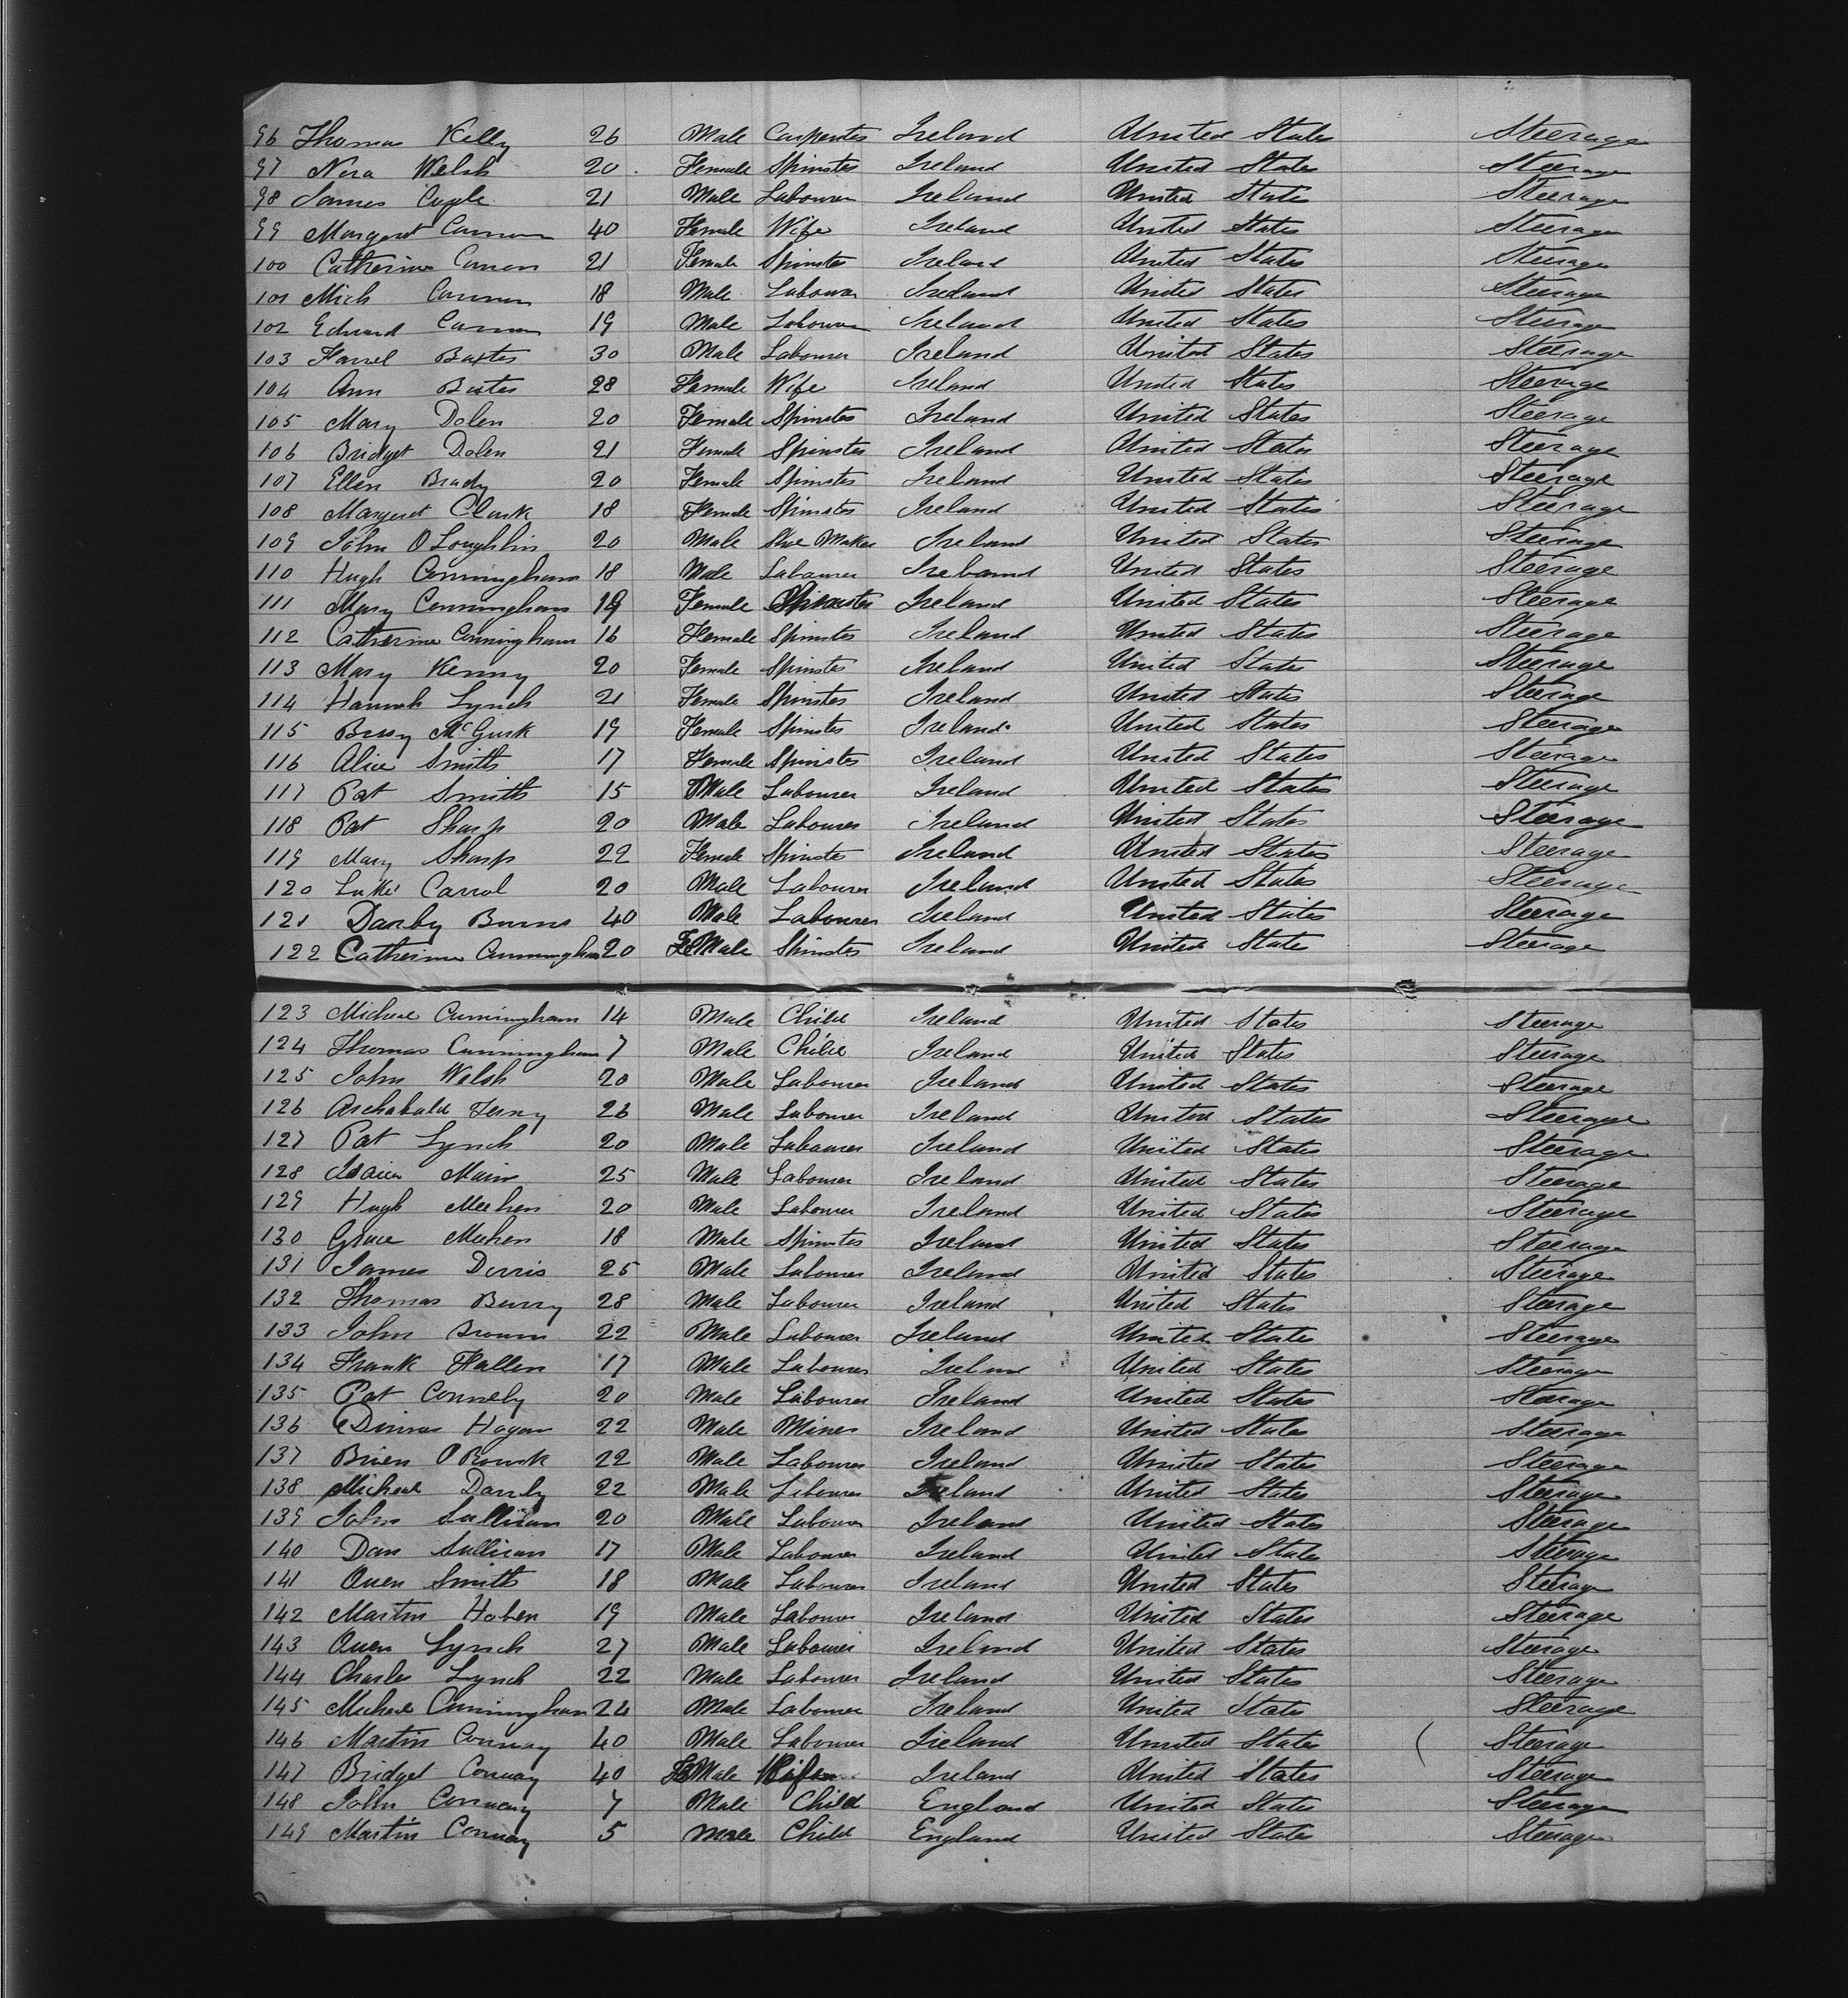 96 Thomas Kelly 26 Male Carpenter Ireland United States Steerage
97 Nora Welsh 20 Female Spinster Ireland United States Steerage
98 James 21 Male Labourer Ireland United States Steerage
99 Margaret Cannon 40 Female Wife Ireland United States Steerage
100 Catherine Cannon 21 Female Spinster Ireland United States Steerage
101 Mich Cannon 18 Male Labourer Ireland United States Steerage
102 Edward Cannon 19 Male Labourer Ireland United States Steerage
103 Farrel Baxter 30 Male Labourer Ireland United States Steerage
104 Ann Baxter 28 Female Wife Ireland United States Steerage
105 Mary Dolen 20 Female Spinster Ireland United States Steerage
106 Bridget Dolen 21 Female Spinster Ireland United States Steerage
107 Ellen Brady 20 Female Spinster Ireland United States Steerage
108 Margeret Clark 18 Female Spinster Ireland United States Steerage
109 John O Loughlin 20 Male Shoe Maker Ireland United States Steerage
110 Hugh Cunningham 18 Male Labourer Ireland United States Steerage
111 Mary Cunningham 19 Female Spinster Ireland United States Steerage
112 Catherine Cunningham 16 Female Spinster Ireland United States Steerage
113 Mary Kenny 20 Female Spinster Ireland United States Steerage
114 Hannah Lynch 21 Female Spinster Ireland United States Steerage
115 Bessy McGurk 19 Female Spinster Ireland United States Steerage
116 Alice Smith 17 Female Spinster Ireland United States Steerage
117 Pat Smith 15 Male Labourer Ireland United States Steerage
118 Pat Sharp 20 Male Labourer Ireland United States Steerage
119 Mary Sharp 22 Female Spinster Ireland United States Steerage
120 Luke Carrol 20 Male Labourer Ireland United States Steerage
121 Darby Burns 40 Male Labourer Ireland United States Steerage
122 Catherine Cunningham 20 FeMale Spinster Ireland United States Steerage
123 Micheal Cunningham 14 Male Child Ireland United States Steerage
124 Thomas Cunningham 7 Male Child Ireland United States Steerage
125 John Welsh 20 Male Labourer Ireland United States Steerage
126 Archabald 26 Male Labourer Ireland United States Steerage
127 Pat Lynch 20 Male Labourer Ireland United States Steerage
128 25 Male Labourer Ireland United States Steerage
129 Hugh Meehen 20 Male Labourer Ireland United States Steerage
130 Grace Meehen 18 Male Spinster Ireland United States Steerage
131 James Dorris 25 Male Labourer Ireland United States Steerage
132 Thomas Burry 28 Male Labourer Ireland United States Steerage
133 John Brown 22 Male Labourer Ireland United States Steerage
134 Frank Fallen 17 Male Labourer Ireland United States Steerage
135 Pat Connely 20 Male Labourer Ireland United States Steerage
136 Dinnes Hogan 22 Male Miner Ireland United States Steerage
137 Brien O Rourk 22 Male Labourer Ireland United States Steerage
138 Micheal Darely 22 Male Labourer Ireland United States Steerage
139 John Sullivan 20 Male Labourer Ireland United States Steerage
140 Dan Sullivan 17 Male Labourer Ireland United States Steerage
141 Owen Smith 18 Male Labourer Ireland United States Steerage
142 Martin Hoben 19 Male Labourer Ireland United States Steerage
143 Owen Lynch 27 Male Labourer Ireland United States Steerage
144 Charles Lynch 22 Male Labourer Ireland United States Steerage
145 Micheal Cunningham 24 Male Labourer Ireland United States Steerage
146 Martin Conway 40 Male Labourer Ireland United States Steerage
147 Bridget Conway 40 FeMale Wife Ireland United States Steerage
148 John Conway 7 Male Child England United States Steerage
149 Martin Conway 5 Male Child England United States Steerage